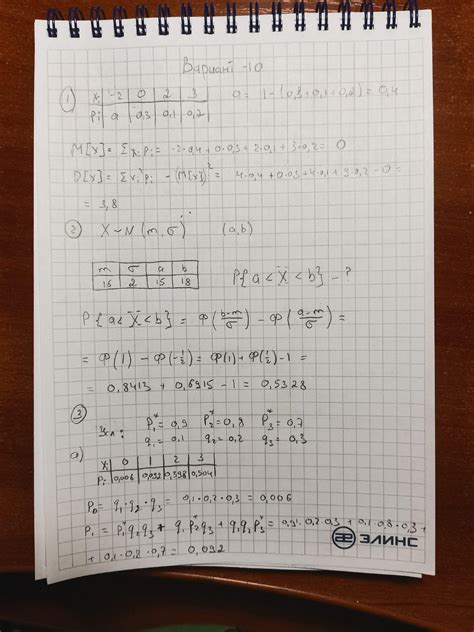 Варіант -10
1) Xi -2 0 2 3 a = 1-(0,3+0,1+0,2) = 0,4
Pi a 0,3 0,1 0,2
M[X] = Σxipi = -2·0,4 + 0·0,3 + 2·0,1 + 3·0,2 = 0
D[X] = Σxi²pi - (M[X])² = 4·0,4 + 0·0,3 + 4·0,1 + 9·0,2 - 0 =
= 3,8
2) X~N(m,σ) (a,b)
m σ a b
16 2 15 18 P{a<X<b} - ?
P{a<X<b} = Φ((b-m)/σ) - Φ((a-m)/σ) =
= Φ(1) - Φ(-1/2) = Φ(1) + Φ(1/2) - 1 =
= 0,8413 + 0,6915 - 1 = 0,5328
3)
P1* = 0,9 P2* = 0,8 P3* = 0,7
q1 = 0.1 q2 = 0,2 q3 = 0,3
а) Xi 0 1 2 3
Pi 0,006 0,092 0,398 0,504
P0 = q1·q2·q3 = 0,1·0,2·0,3 = 0,006
P1 = P1*q2q3 + q1P2*q3 + q1q2P3* = 0,9·0.2·0,3 + 0,1·0,8·0,3 +
+ 0,1·0,2·0,7 = 0,092
ЭЛИНС